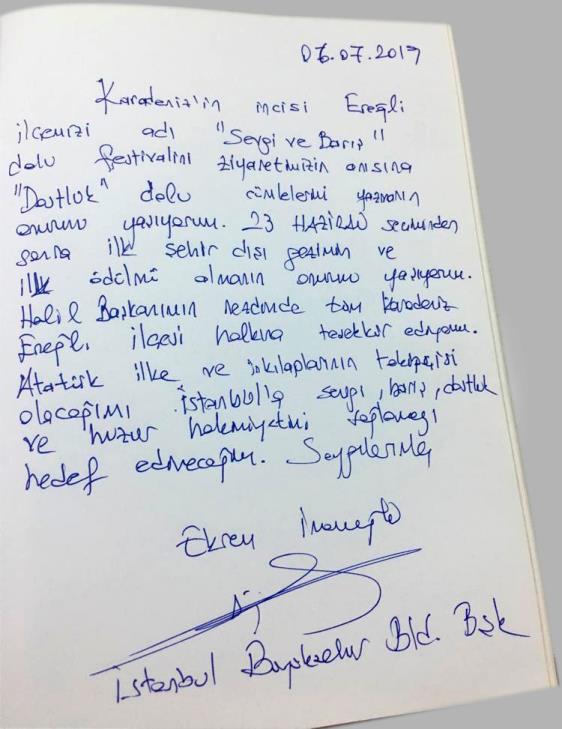 06.07.2019
Karadeniz'in incisi Ereğli
ilçemizi adı "Sevgi ve Barış"
dolu festivalini ziyaretimizin anısına
"Dostluk" dolu cümlelerimi yazmanın
onurunu yaşıyorum. 23 HAZİRAN seçiminden
sonra ilk şehir dışı gezimin ve
ilk ödülmü almanın onurunu yaşıyorum.
Halil Başkanımın nezdinde tüm Karadeniz
Ereğli ilçesi halkına teşekkür ediyorum.
Atatürk ilke ve inkılaplarının takipçisi
olacağımı İstanbul'la sevgi, barış, dostluk
ve huzur hakimiyetini sağlamayı
hedef edineceğim. Saygılarımla
Ekrem İmamoğlu
İstanbul Büyükşehir Bld. Bşk